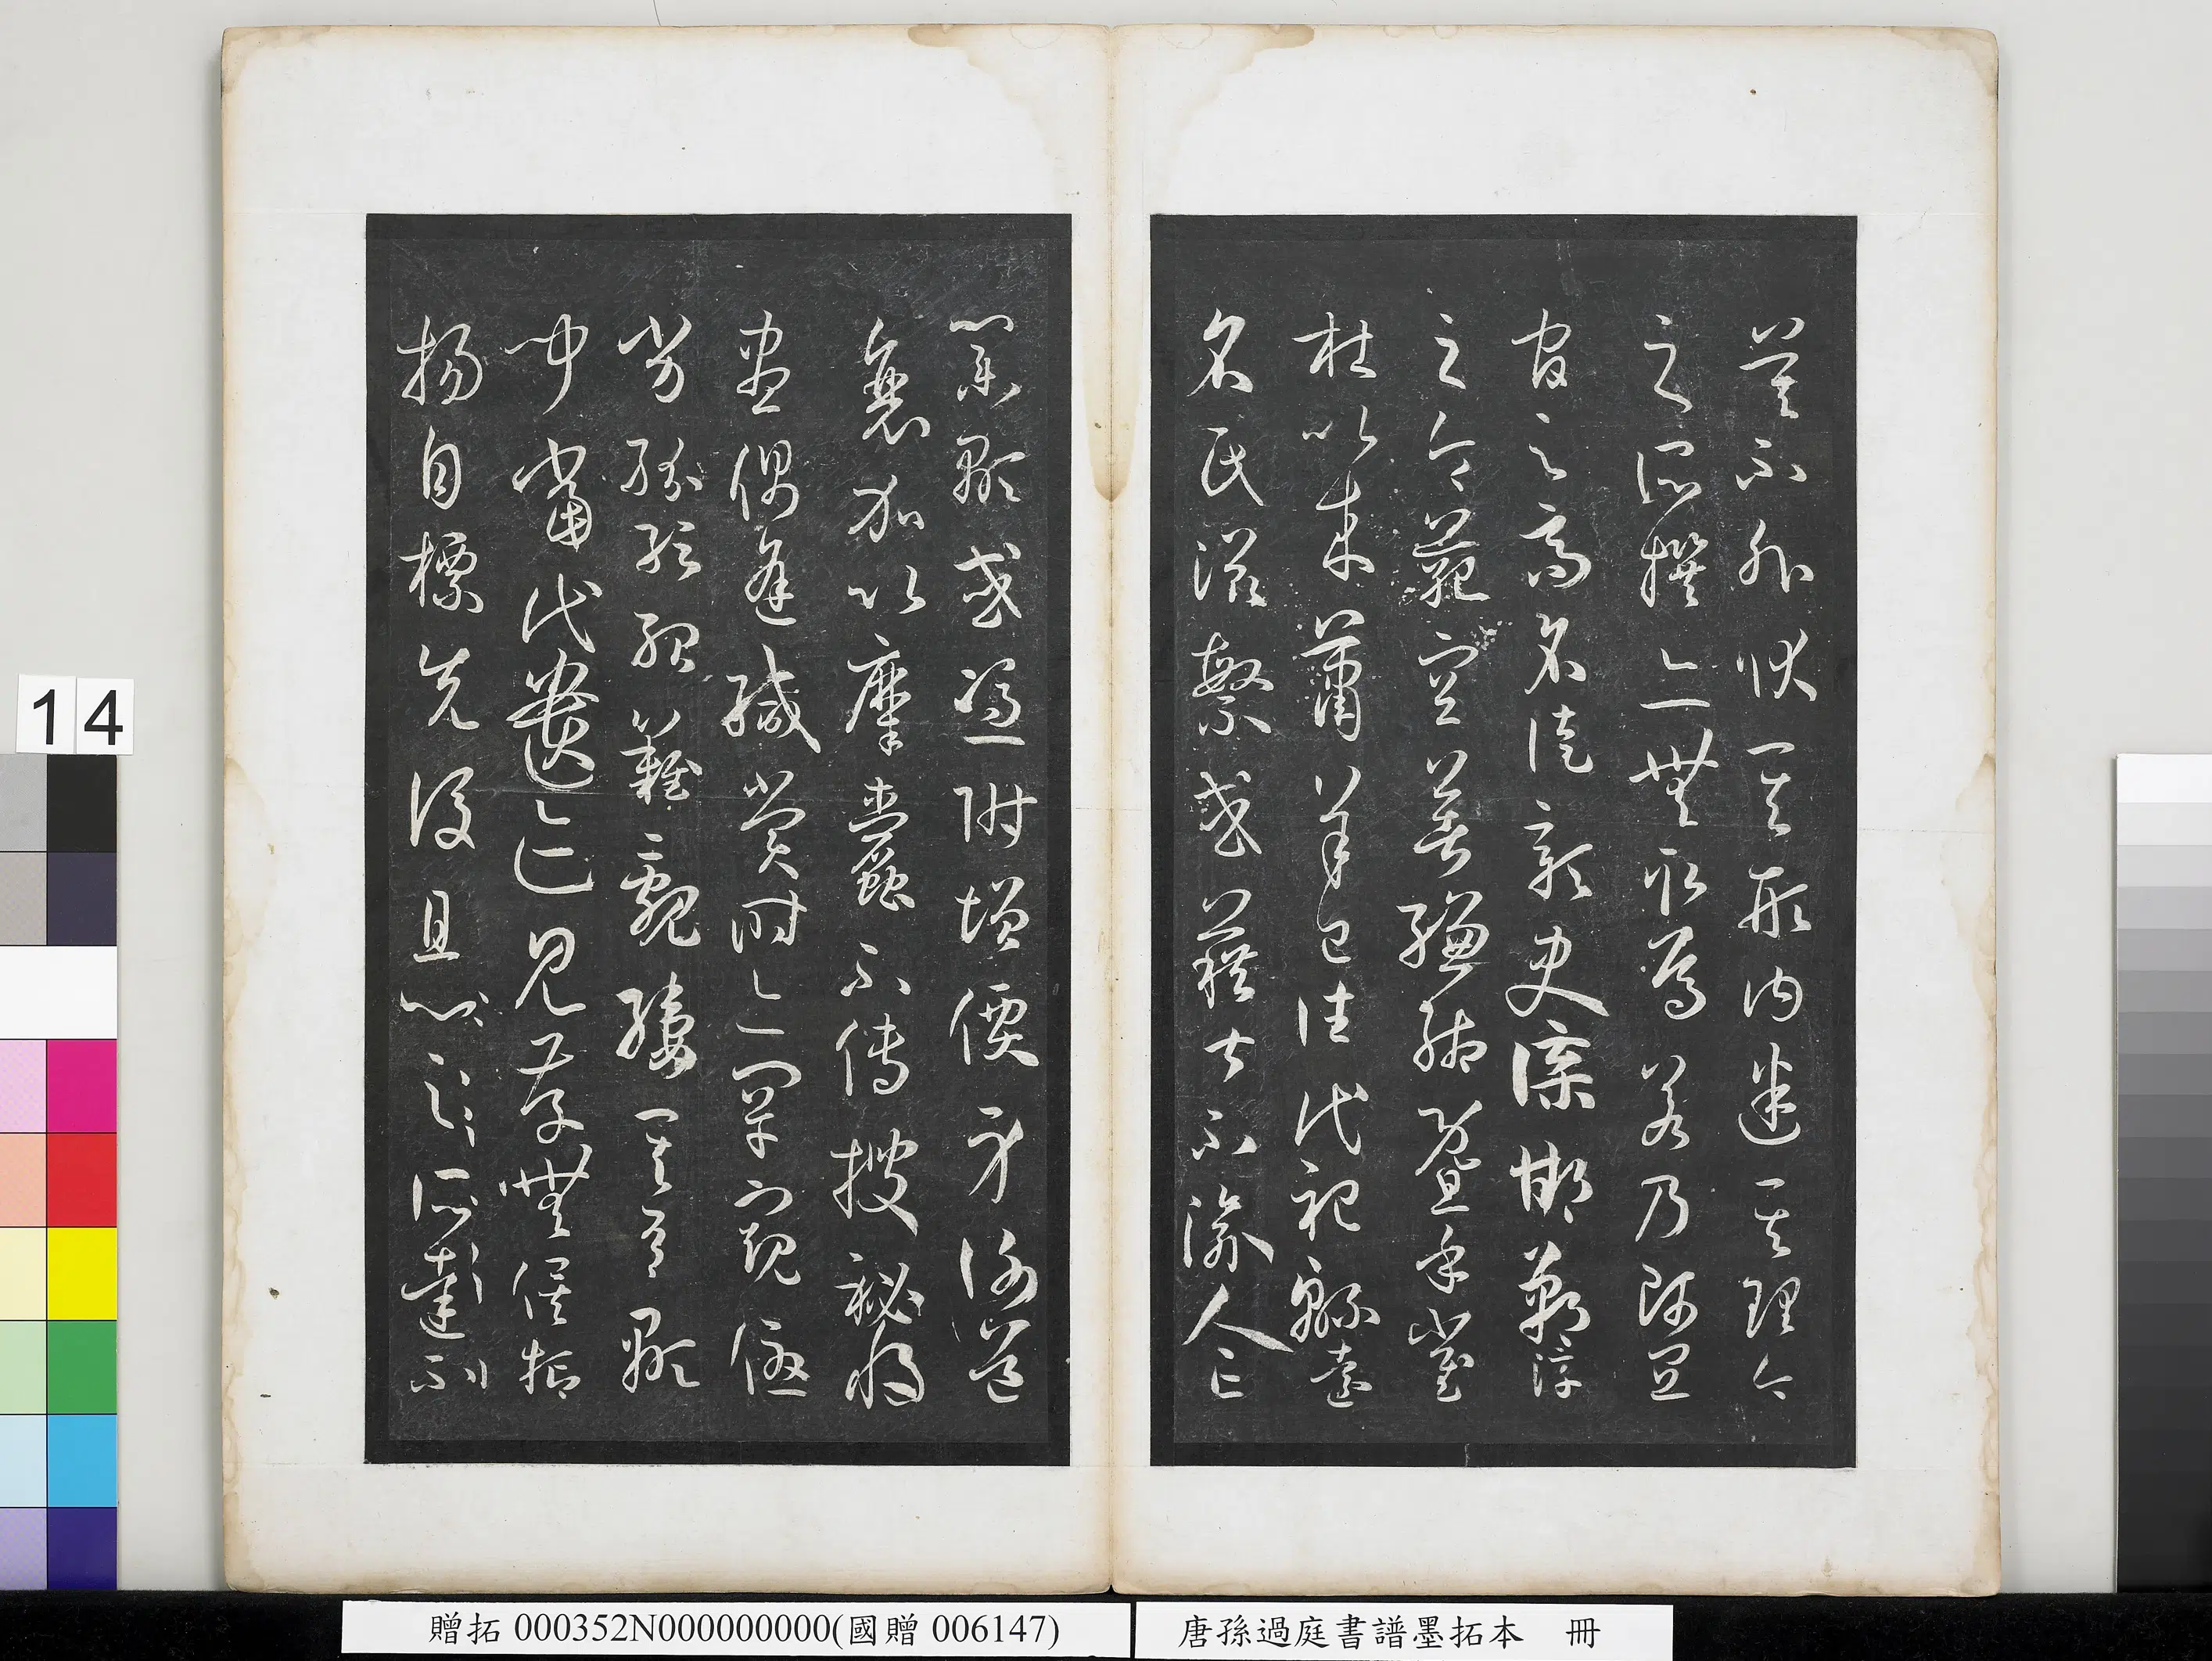 莫不外狀其形內迷其理今
之所撰亦無取焉若乃師宜
官之高名徒彰史牒邯鄲淳
之令範空著縑緗暨乎崔
杜以來蕭羊已往代祀綿遠
名氏滋繁或藉甚不渝人亡
業顯或憑附增價身謝道
衰加以糜蠹不傳搜秘將
盡偶逢緘賞時亦罕窺優
劣紛紜殆難覼縷其有顯
聞當代遺跡見存無俟抑
揚自標先後且心之所達不
14
贈拓 000352N000000000(國贈 006147)
唐孫過庭書譜墨拓本 冊